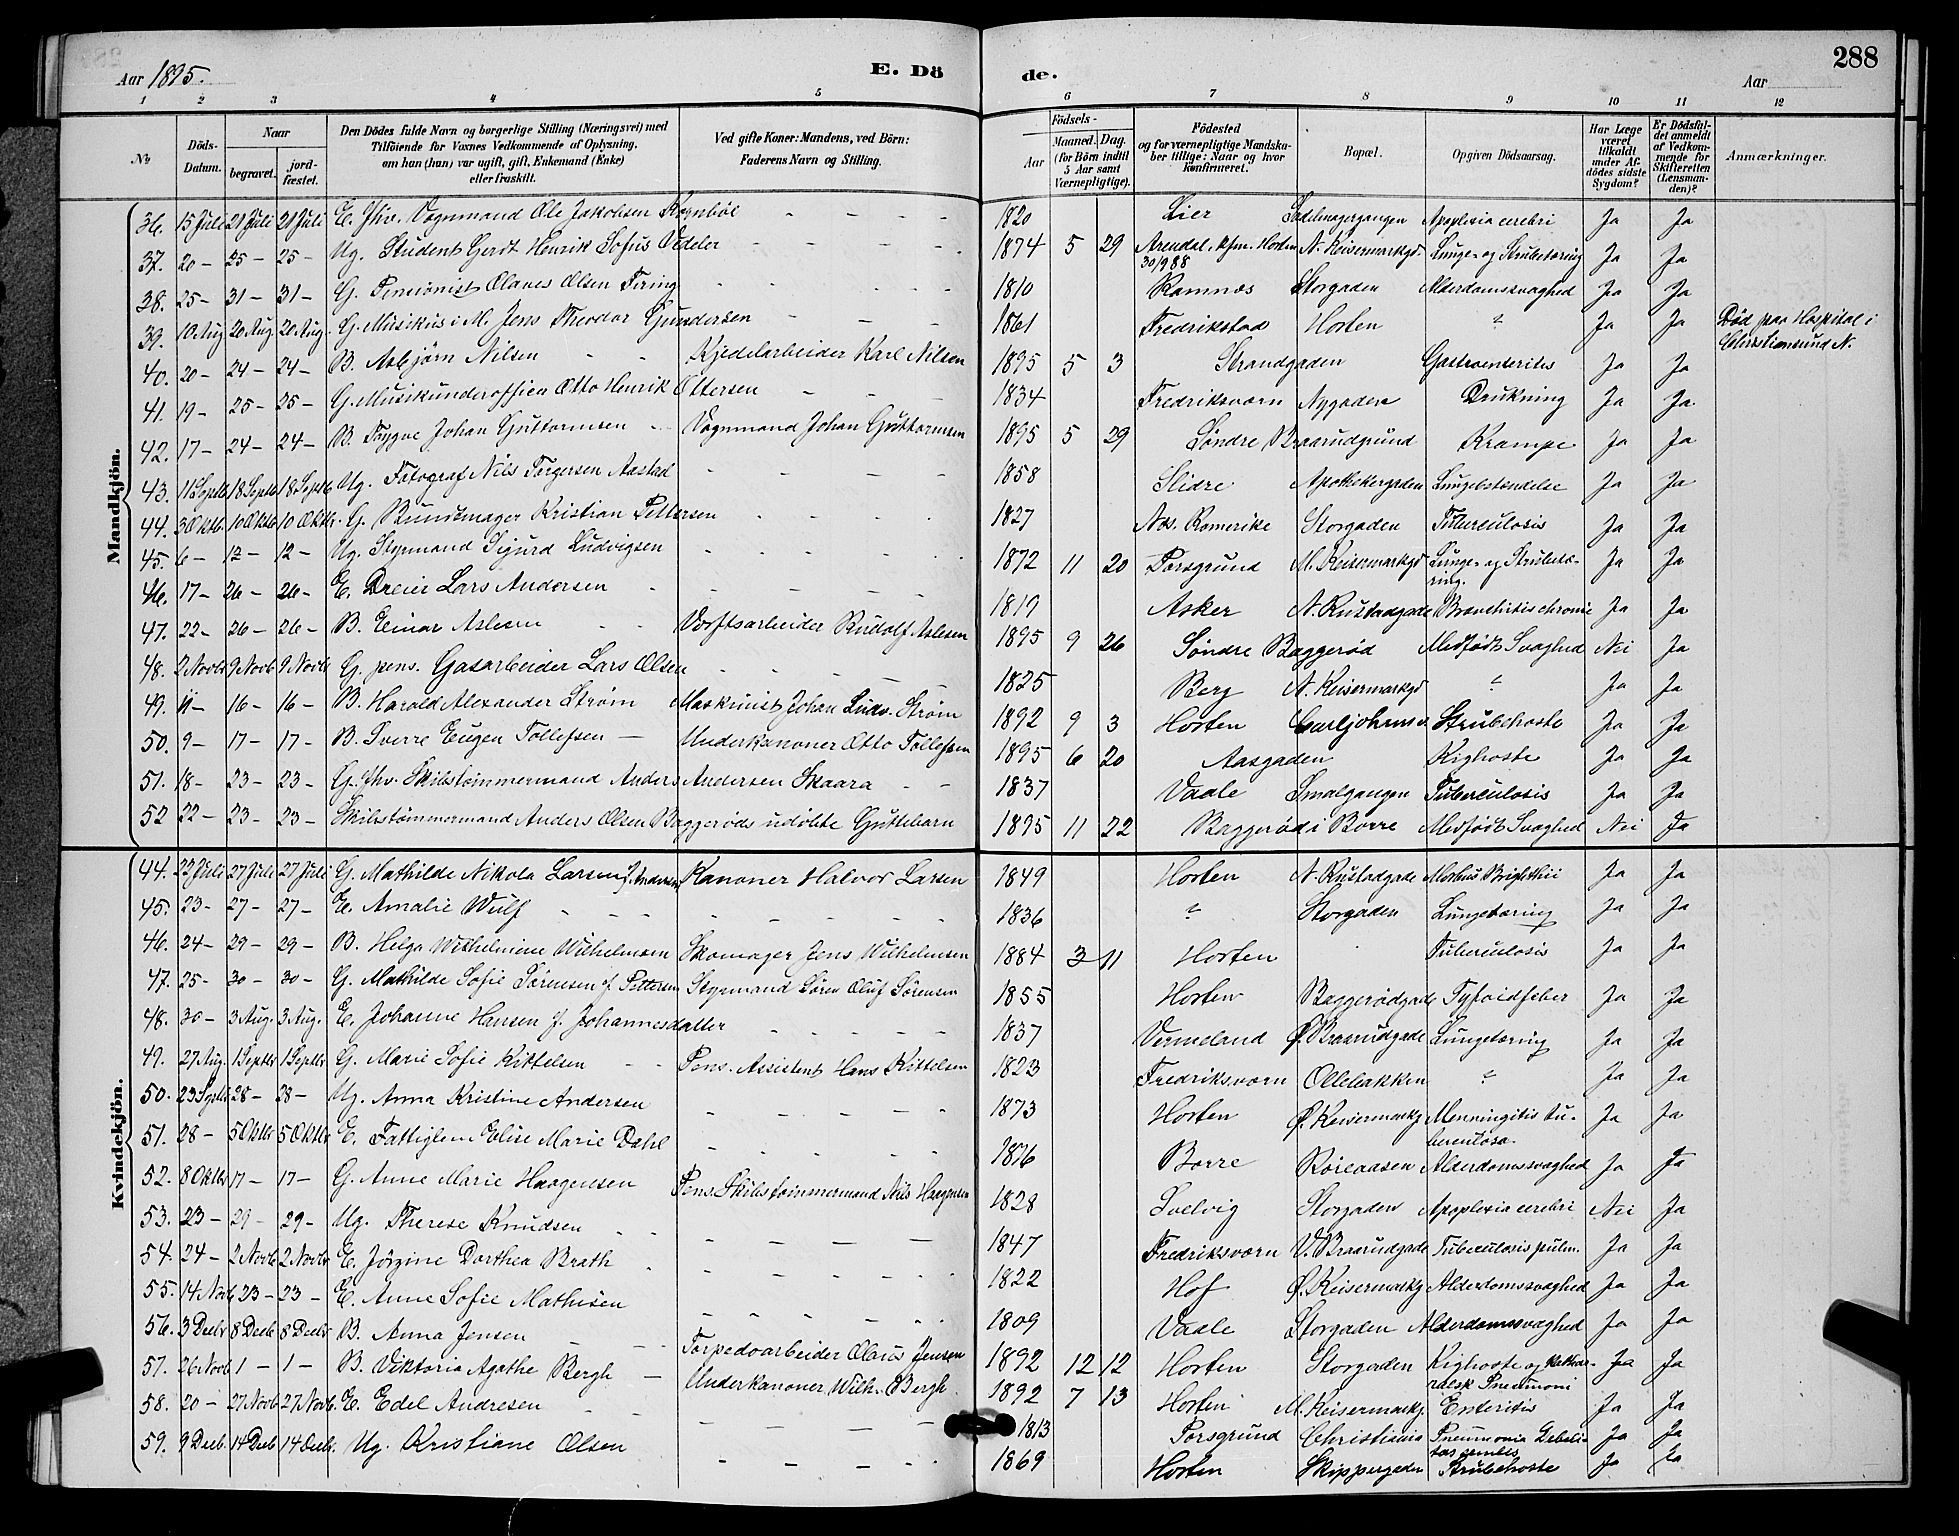 288
Aar 1895.
E. Dö
de.
Aar
1 2 3 4 5 6 7 8 9 10 11 12
No
Döds-Datum.
Naar
begravet.
jord-fæstet.
Den Dödes fulde Navn og borgerlige Stilling (Næringsvei) med
Tilföiende for Voxnes Vedkommende af Oplysning,
om han (hun) var ugift, gift, Enkemand (Enke)
eller fraskilt.
Ved gifte Koner: Mandens, ved Börn:
Faderens Navn og Stilling.
Födsels-
Aar
Maaned. Dag.
(for Börn indtil
5 Aar samt
Værnepligtige).
Födested
og for værnepligtige Mandska-
ber tillige: Naar og hvor
konfirmeret.
Bopæl.
Opgiven Dödsaarsag.
Har Læge
været
tilkaldt
under Af-
dødes sidste
Sygdom?
Er Dödsfal-
det anmeldt
af Vedkom-
mende for
Skifteretten
(Lensman-
den)?
Anmærkninger.
Mandkjön.
36. 15 Juli 21 Juli 21 Juli E. fhv. Vognmand Ole Jakobsen Røgnböl - - - 1820 Lier Sadelmagergangen Apoplexia cerebri Ja Ja
37. 20 - 25 - 25 - Ug. Student Gerdt Henrik Sofus Vedeler - - - 1874 5 29 Arendal. kfm. Horten 30/9 88 N. Keisermarkgd. Lunge- og Strubetæring Ja Ja
38. 25 - 31 - 31 - G. Pensionist Olaves Olsen Firing - - - 1810 Ramnes Storgaden Alderdomssvaghed Ja Ja
39. 10 Aug 20 Aug 20 Aug. G. Musikus i M. Jens Theodor Gundersen - - - 1861 Fredrikstad Horten ? Ja Ja Död paa Hospital i Christiansund N.
40. 20 - 24 - 24 - B. Asbjörn Nilsen - - Kjedelarbeider Karl Nilsen 1895 5 3 Strandgaden Gastroenterites Ja Ja
41. 19 - 25 - 25 - G. Musikunderofficer Otto Henrik Ottersen - - - 1834 Fredriksværn Nygaden Drukning Ja Ja
42. 17 - 24 - 24 - B. Trygve Johan Guttormsen - Vognmand Johan Guttormsen 1895 5 29 Søndre Braarudgrund Krampe Ja Ja
43. 11 Septb 18 Septb 18 Septb Ug. Fotograf Nils Torgersen Aastad - - - 1858 Slidre Apothekergaden Lungebetændelse Ja Ja
44. 3 Oktb 10 Oktb 10 Oktb. G. Bundtmager Kristian Pettersen - - - 1827 Næs. Romerike Storgaden Tuberculosis Ja Ja
45. 6 - 12 - 12 - Ug. Styrmand Sigurd Ludvigsen - - - 1872 11 20 Porsgrund M. Keisermarkgd Lunge- og Strubetæ-ring. Ja Ja
46. 17 - 26 - 26 - E. Dreier Lars Andersen - - - 1819 Asker N. Rustadgade Bronchitis chronic Ja Ja
47. 22 - 26 - 26 - B. Einar Aslesen - - Værftsarbeider Rudolf Aslesen 1895 9 26 Søndre Baggerød Medfödt Svaghed Nei Ja
48. 2 Novb 9 Novb 9 Novb G. pens. Gasarbeider Lars Olsen - - - 1825 Berg N. Keisermarkgd ? Ja Ja
49. 11 - 16 - 16 - B. Harald Alexander Strøm Maskinist Johan Ludv. Strøm 1892 9 3 Horten Carljohansv. Strubehoste Ja Ja
50. 9 - 17 - 17 - B. Sverre Eugen Tollefsen - Underkanoner Otto Tollefsen 1895 6 20 Aasgaden Kighoste Ja Ja
51. 18 - 23 - 23 - G. fhv. Skibstømmermand Anders Andersen Skaara - - 1837 Vaale Smalgangen Tuberculosis Ja Ja
52 22 - 23 - 23 - Skibstømmermand Anders Olsen Baggerøds udöbte Guttebarn 1895 11 22 Baggerød i Borre Medfödt Svaghed Nei Ja
Kvindekjön.
44. 22 Juli 27 Juli 27 Juli G. Mathilde Nikola Larsen f. Andersen Kanoner Halvor Larsen 1849 Horten N. Rustadgade Morbus Brighthii Ja Ja
45. 23 - 27 - 27 - E. Amalie Wulf - - - 1836 ? Storgaden Lungetæring Ja Ja
46. 24 - 29 - 29 - B. Helga Wilhelmine Wilhelmsen Skomager Jens Wilhelmsen 1884 3 11 Horten Tuberculosis Ja Ja
47. 25 - 30 - 30 - G. Mathilde Sofie Sörensen f. Pettersen Styrmand Sören Oluf Sörensen 1855 Horten Baggerødgade Tyfoidfeber Ja Ja
48. 30 - 3 Aug. 3 Aug. E. Johanne Hansen f. Johannesdatter - - - 1837 Vermeland Ø. Braarudgade Lungetæring Ja Ja
49. 27 Aug. 1 Septbr 1 Septbr G. Marie Sofie Kittelsen - - Pens. Assistent Hans Kittelsen 1823 Fredriksværn Ollebakken ? Ja Ja
50. 23 Septb 28 - 28 - Ug. Anna Kristine Andersen - - - 1873 Horten Ø. Keisermarkg Menningitis tu-berculosa. Ja Ja
51. 28 - 5 Oktbr 5 Oktbr E. Fattiglem Elise Marie Dahl - - - 1816 Borre Röreaasen Alderdomssvaghed Ja Ja
52. 8 Oktbr 17 - 17 - G. Anne Marie Haagensen Pens. Skibstømmermand Nils Haagensen 1828 Svelvig Storgaden Apoplexia cerebri Nei Ja
53. 23 - 29 - 29 - Ug. Therese Knudsen - - - 1847 Fredriksværn V. Braarudgade Tuberculosis pulm. Ja Ja
54. 24 - 2 Novb 2 Novbr E. Jörgine Dorthea Brath - - - 1822 Hof Ø. Keisermarkg Alderdomssvaghed Ja Ja
55. 14 Novb 23 - 23 - E. Anne Sofie Mathisen - - - 1809 Vaale Storgaden Alderdomssvaghed Ja Ja
56. 3 Decbr 8 Decb 8 Decbr B. Anna Jensen - - Torpedoarbeider Olaus Jensen 1892 12 12 Horten Storgaden Kighoste og Kathar-ralsk Pneumoni Ja Ja
57. 26 Novb 1 - 1 - B. Viktoria Agathe Bergh - Underkanoner Wilh. Bergh. 1892 7 13 Horten M. Keisermarkg. Enteritis Ja Ja
58. 20 - 27 Novb 27 Novb. E. Edel Andresen - - - 1813 Porsgrund Christiania Pneumonia Debili-tas senilis Ja Ja
59. 9 Decb. 14 Decb 14 Decb. Ug. Kristiane Olsen - - - 1869 Horten Skippergaden Strubehoste Ja Ja